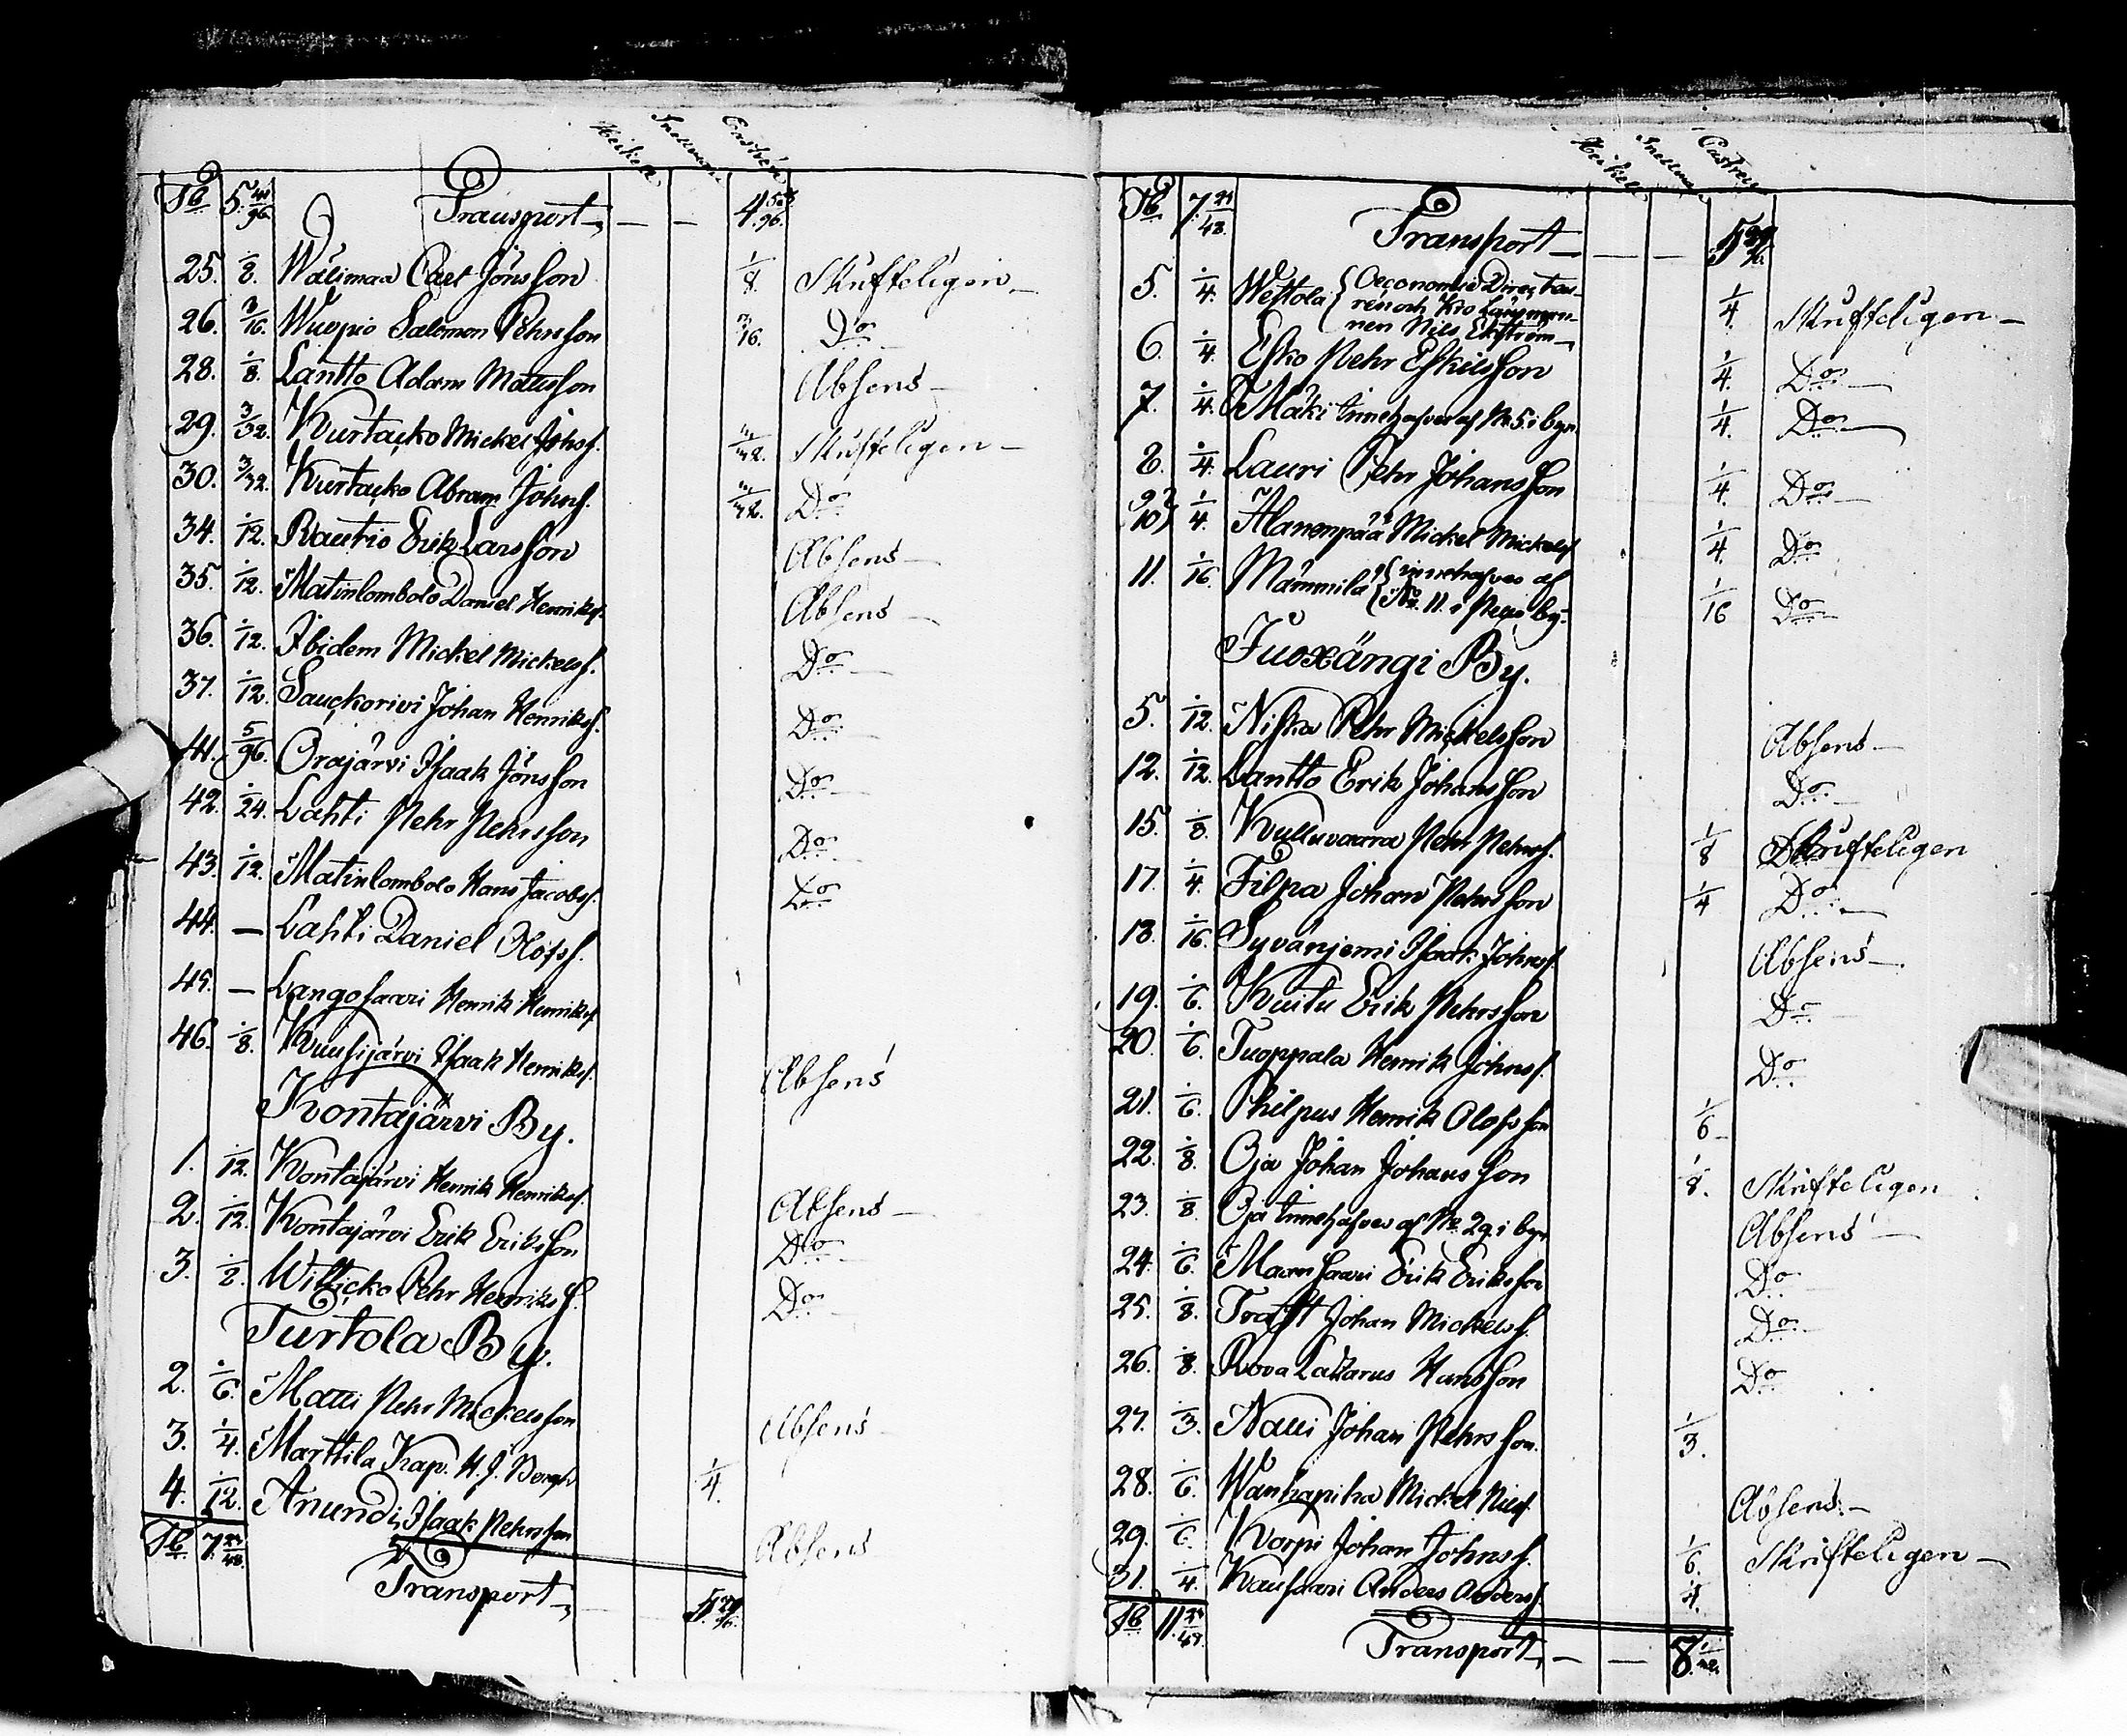 Heikell Snellman Castrén
Sb 5.41/96 Transport — — 4.
25. 1/8. Wälimaa Carl Jönsson 1/8. Skrifteligen —
26. 3/16. Wuopio Salomon Pehrsson 3/16. Do
28. 1/8. Lantto Adam Matsson Absens —
29. 3/32. Kurtacko Mickel Johsf. 3/32. Skrifteligen —
30. 3/32. Kurtacko Abram Johnsf. 3/32. Do
34. 1/12. Rautio Erik Larsson Absens —
35. 1/12. Matinlombolo Daniel Henriksf. Absens —
36. 1/12. Ibidem Mickel Mickelsf. Do —
37. 1/12. Sauckorivi Johan Henriksf. Do —
41. 5/96. Orajärvi Isaak Jönsson Do —
42. 1/24. Lahti Pehr Pehrsson Do —
43. 1/12. Matinlombolo Hans Jacobsf. Do
44. — Lahti Daniel Olofsf.
45. — Langosaari Henrik Henriksf.
46. 1/8. Kuusijärvi Isaak Henriksf. Absens
Kontajärvi By.
1. 1/12. Kontajärvi Henrik Henriksf. Absens —
2. 1/12. Kontajärvi Erik Eriksson Do —
3. 1/2. Witticko Pehr Henriksf. Do —
Turtola By.
2. 1/6. Matti Pehr Mickelsson Absens —
3. 1/4. Marttila Kap. H. J. Bergh 1/4.
4. 1/12. Anundi, Isaak Pehrsson Absens
Sb 7. Transport — 5.
Heikell Snellman Castrén
Sb 7. Transport — — 5
5. 1/4. Wettola { Oeconomie Directeu-
ren och Kro Länsman-
nen Nils Ekström — 1/4 Skrifteligen —
6. 1/4. Esko Pehr Eskilsson 1/4. Do —
7. 1/4. Mäki innehafves af No 5. i byn. 1/4. Do —
8. 1/4. Lauri Pehr Johansson 1/4. Do —
9
10 } 1/4. Alanenpää Mickel Mickelsf. 1/4. Do
11. 1/16. Mämmilä { innehafves af
No. 11. i Pello by. 1/16 Do
Juoxängi By.
5. 1/12. Niska Pehr Mickelsson Absens —
12. 1/12. Lantto Erik Johansson Do —
15. 1/8. Kulluvaara Pehr Pehrsf. 1/8 Skrifteligen
17. 1/4. Filpa Johan Pehrsson 1/4 Do —
18. 1/16. Syvänjemi Isaak Johnsf. Absens —
19. 1/6. Kuitu Erik Pehrsson Do —
20. 1/6. Tuoppala Henrik Johnsf. Do
21. 1/6. Philpus Henrik Olofsson 1/6 —
22. 1/8. Oja Johan Johansson 1/8. Skrifteligen
23. 1/8. Oja innehafves af No. 29. i byn Absens —
24. 1/6. Maansaari Erik Eriksson Do —
25. 1/8. Trast Johan Mickelsf. Do —
26. 1/8. Rova Lazarus Hansson Do
27. 1/3. Nalli Johan Pehrsson 1/3.
28. 1/6. Wanhapiha Mickel Nilsf. Absens —
29. 1/6. Korpi Johan Johnsf. 1/6. Skrifteligen —
31. 1/4. Kausaari Anders Andersf. 1/4.
Sb 11. Transport — — 8.